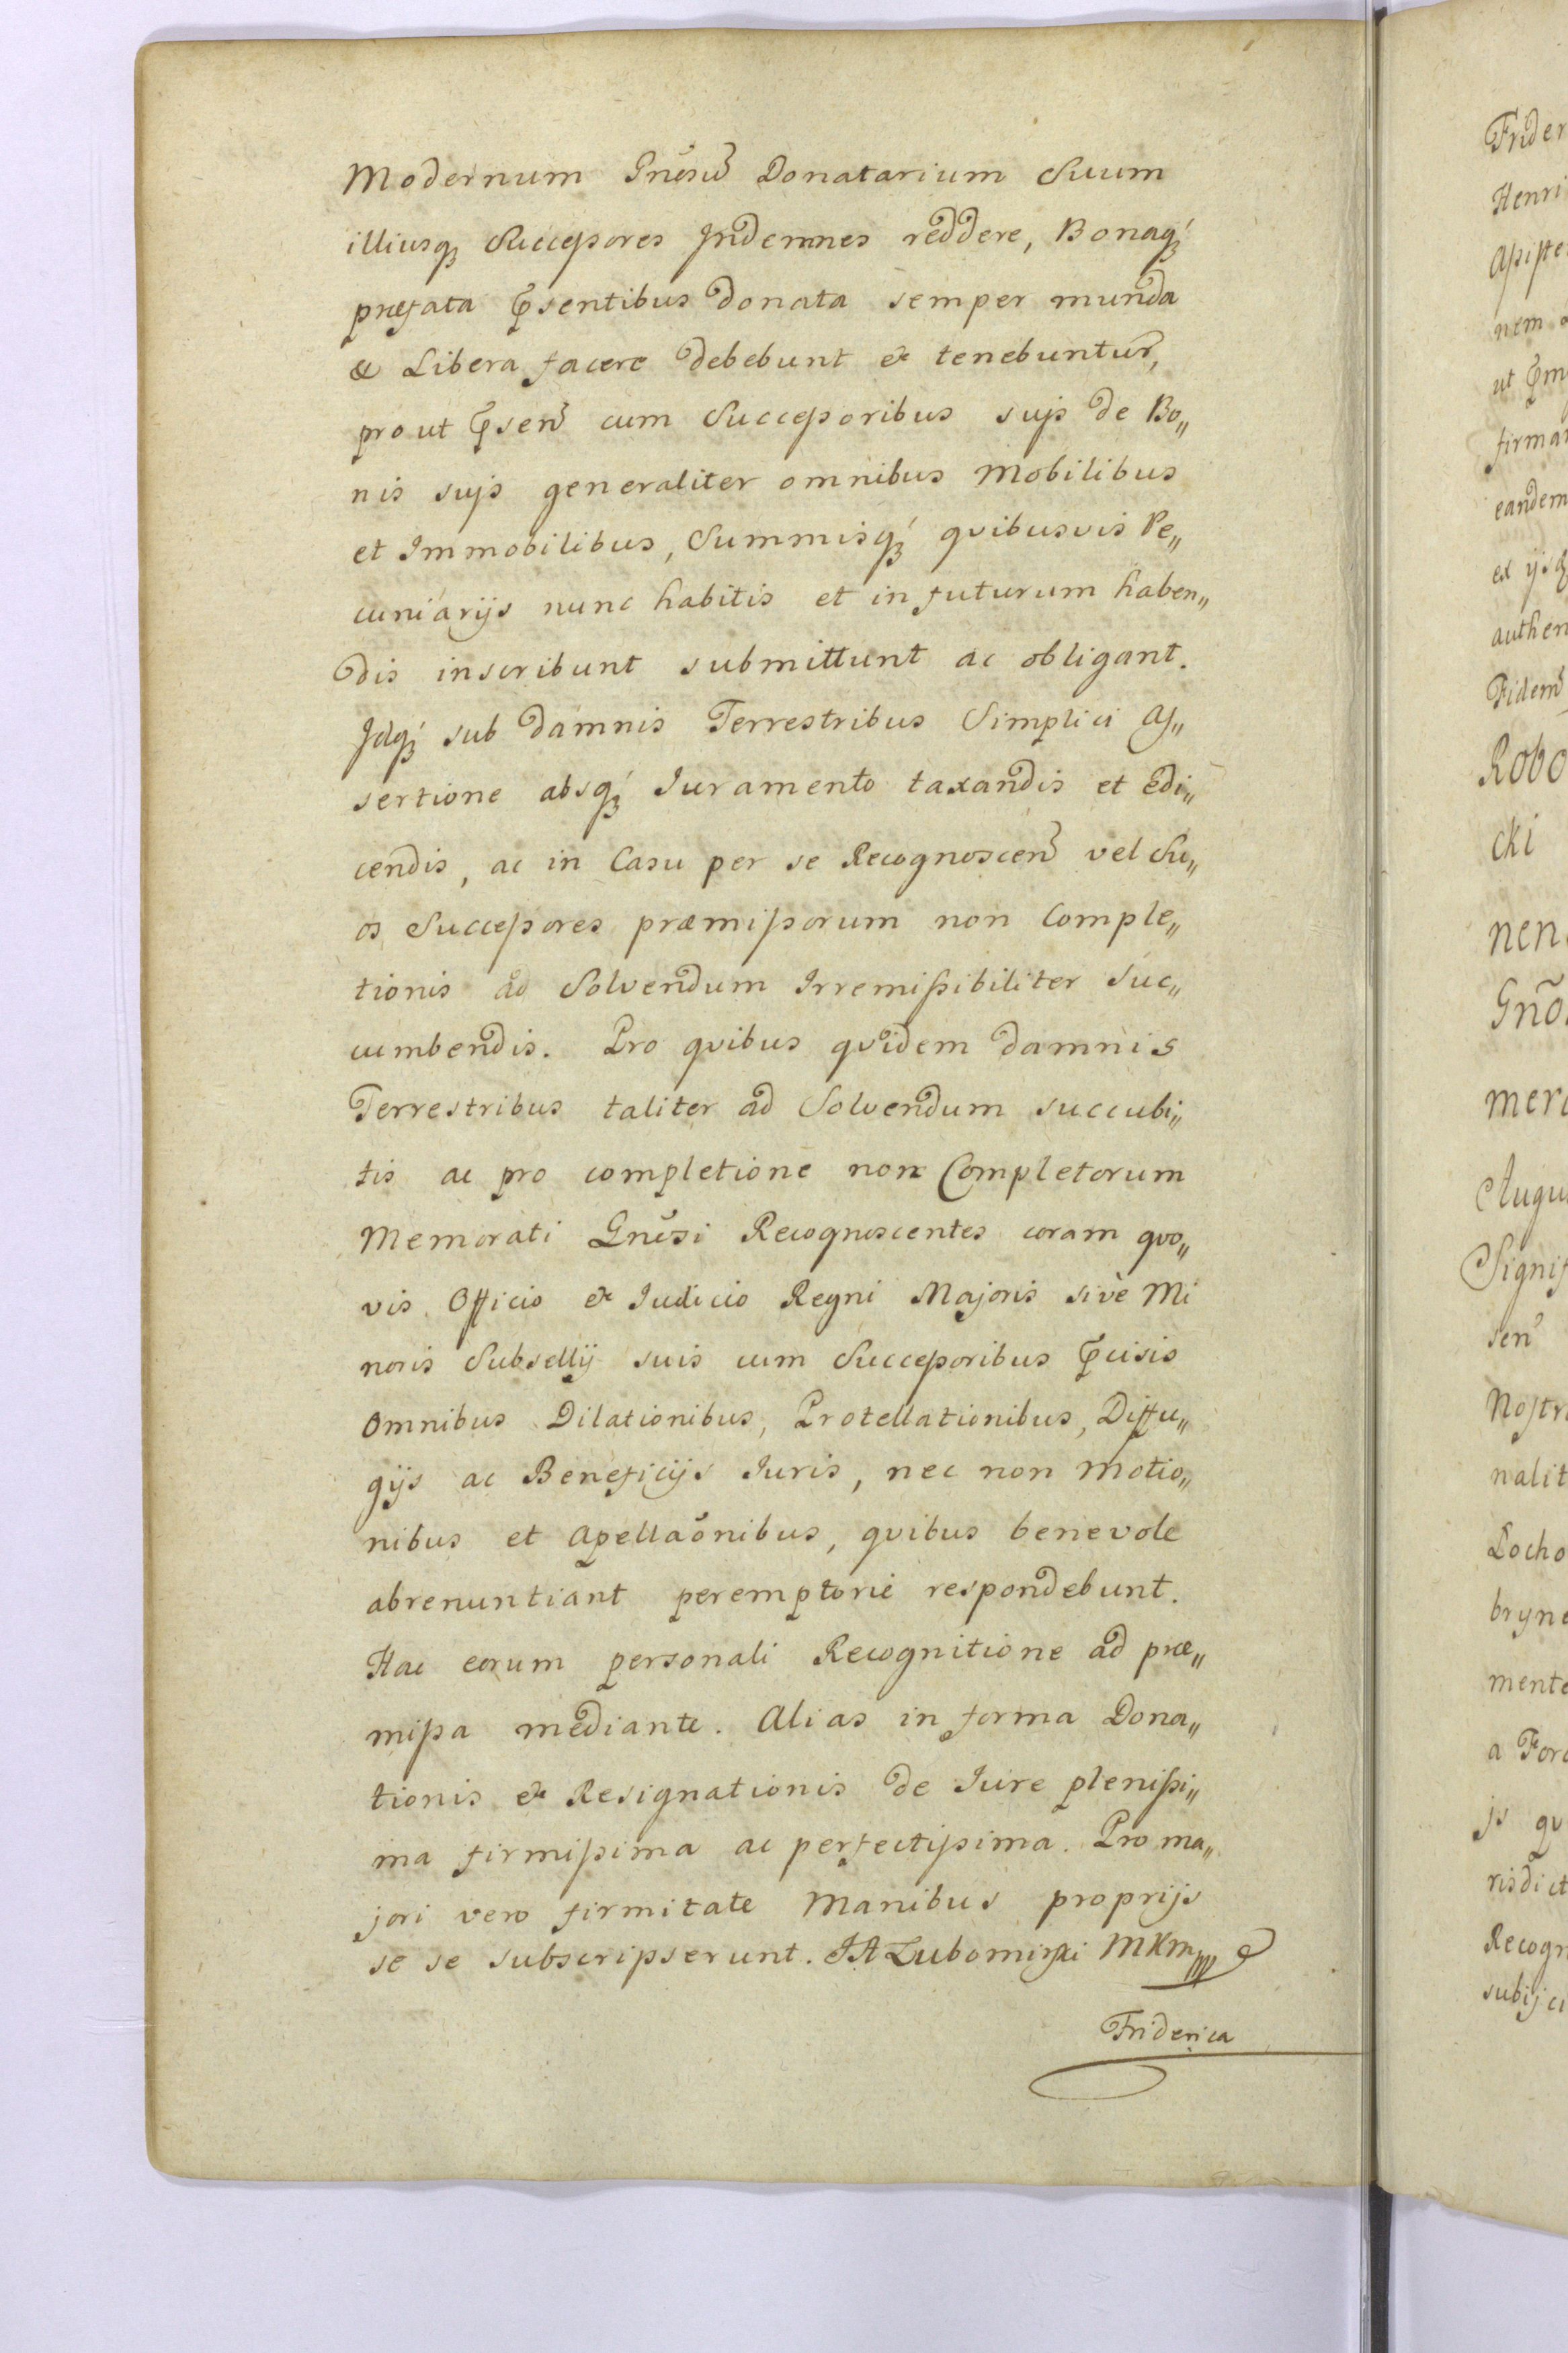 Modernum Gnosũ Donatarium Suum
illiusq; Successores Indemnes reddere, Bonaq;
præfata Psentibus Donata semper munda
& Libera facere debebunt & tenebuntur,
prout Psen̄ cum Successoribus sujs de Bo„
nis sujs generaliter omnibus Mobilibus
et Immobilibus, Summisq; quibusvis Pe„
cuniarijs nunc habitis et in futurum haben„
dis inscribunt submittunt ac obligant.
Idq; sub damnis Terrestribus Simplici As„
sertione absq; Juramento taxandis et Edi„
cendis, ac in Casu per se Recognoscen̄ vel Su„
os Successores præmissorum non Comple„
tionis ad Solvendum Irremissibiliter Suc„
cumbendis. Pro quibus quidem damnis
Terrestribus taliter ad Solvendum succubi„
tis ac pro completione non Completorum
Memorati Gnõsi Recognoscentes coram quo„
vis Officio & Judicio Regni Majoris sivè Mi
noris Subsellij suis cum Successoribus Pcisis
omnibus Dilationibus, Protellationibus, Diffu„
gijs ac Beneficijs Juris, nec non Motio„
nibus et Apellaõnibus, quibus benevole
abrenuntiant peremptoriè respondebunt.
Hac eorum personali Recognitione ad præ„
missa mediante. Alias in forma Dona„
tionis & Resignationis de Jure plenissi„
ma firmissima ac perfectissima. Pro ma„
jori vero firmitate Manibus proprijs
se se subscripserunt. JA Lubomirski MKm
Friderica
Frider
Henri
nem
firma
eandem
ex ijsq
authen
Fidem
Robo
cki
nen
Gnõ
mer
Augu
Signif
sen̄
Nostr
nalit
Locho
bryn
mente
a Foro
js qu
risdict
Recogn
subijci